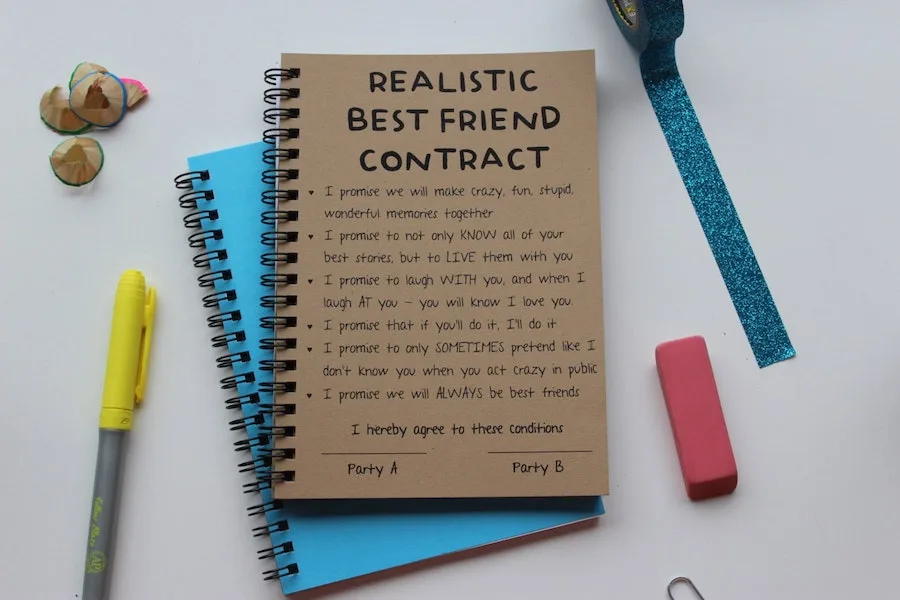 REALISTIC
BEST FRIEND
CONTRACT
♥ I promise we will make crazy, fun, stupid,
wonderful memories together
♥ I promise to not only KNOW all of your
best stories, but to LIVE them with you
♥ I promise to laugh WITH you, and when I
laugh AT you - you will know I love you.
♥ I promise that if you'll do it, I'll do it
♥ I promise to only SOMETIMES pretend like I
don't know you when you act crazy in public
♥ I promise we will ALWAYS be best friends
I hereby agree to these conditions
Party A Party B